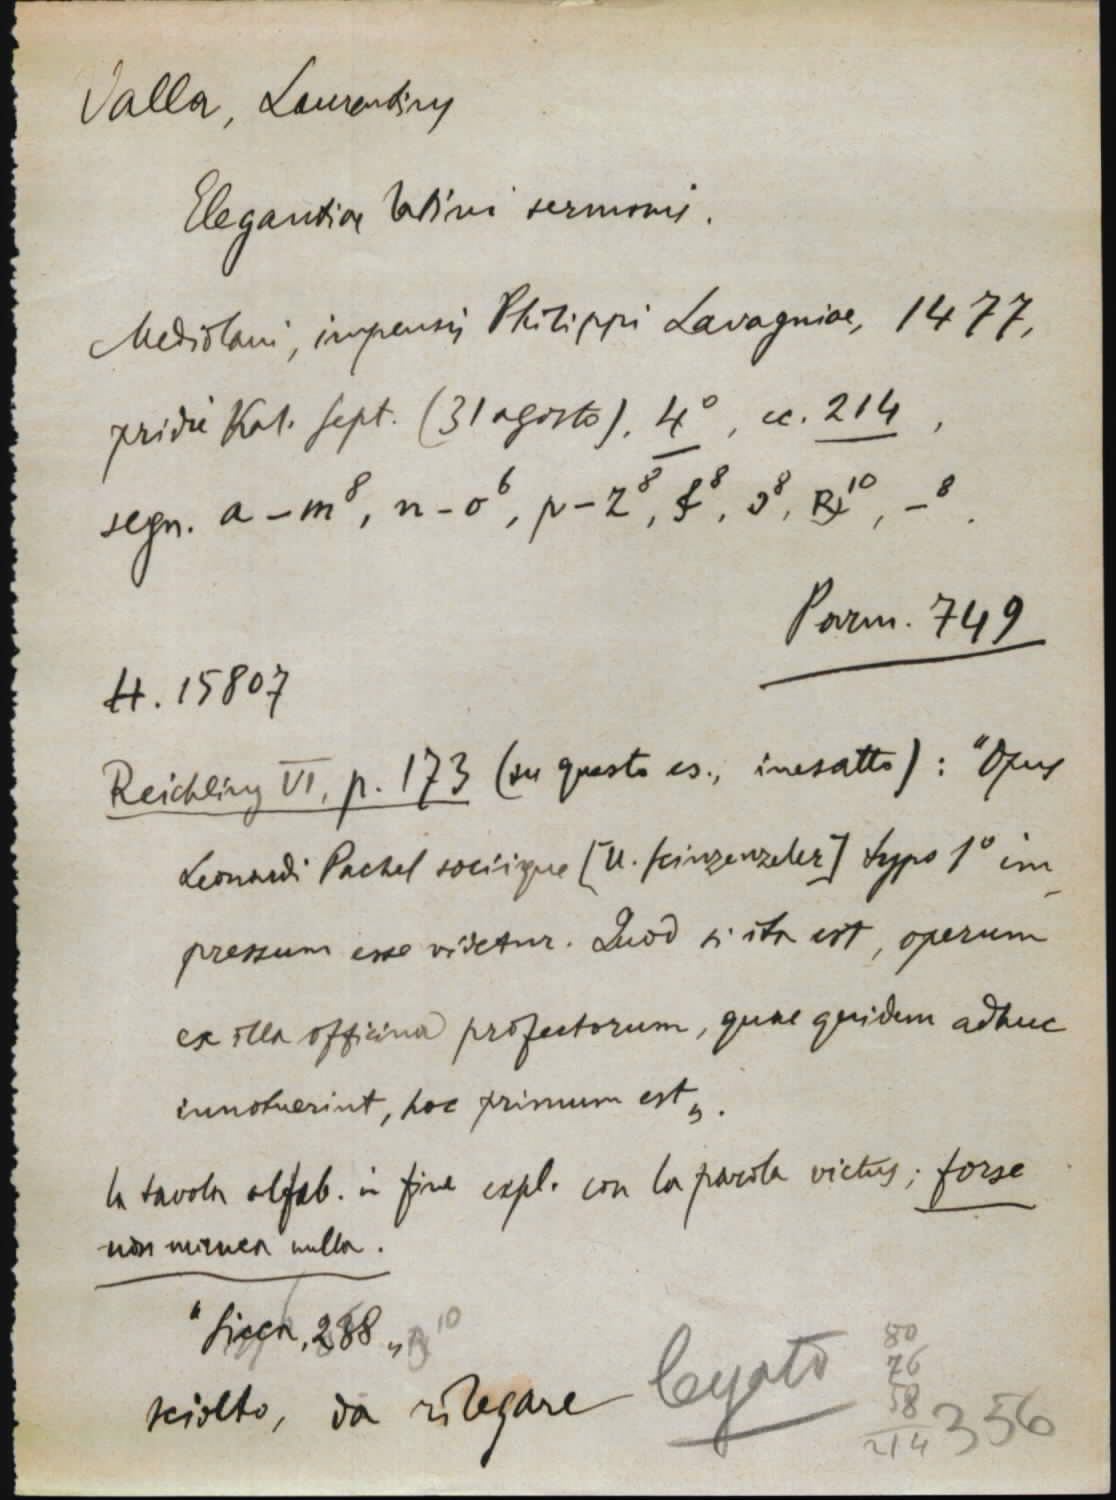 Valla, Laurentius
Elegantiae latini sermonis.
Mediolani, impensis Philippi Lavagniae, 1477,
pridie Kal. sept. (31 agosto). 4°, cc. 214,
segn. a-m⁸, n-o⁶, p-z⁸, &⁸, ɔ⁸, ꝶ¹⁰, -⁸.
Parm. 749
H. 15807
Reichling VI, p. 173 (su questo es., inesatto): "Opus
Leonardi Pachel sociique [U. Scinzenzeler] typo 1° im
pressum esse videtur. Quod si ita est, operum
ex illa officina profectorum, quae quidem adhuc
innotuerint, hoc primum est„.
la tavola alfab. in fine expl. con la parola victus; forse
non manca nulla.
"Siegn, 288„ 10
sciolto, da rilegare legato
80
76
58
214 356